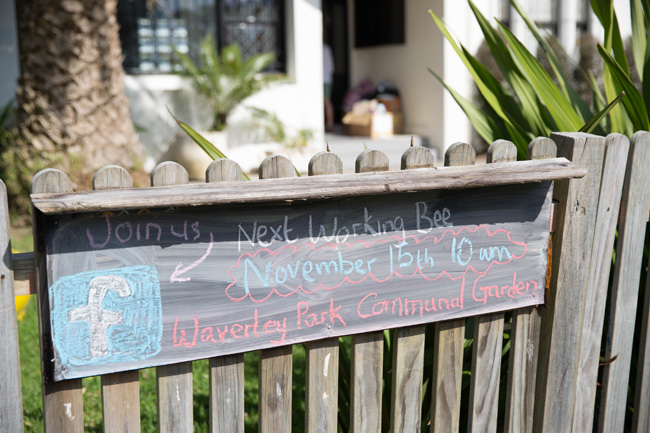 Join us
Next Working Bee
November 15th 10am
f
Waverley Park Communal Garden